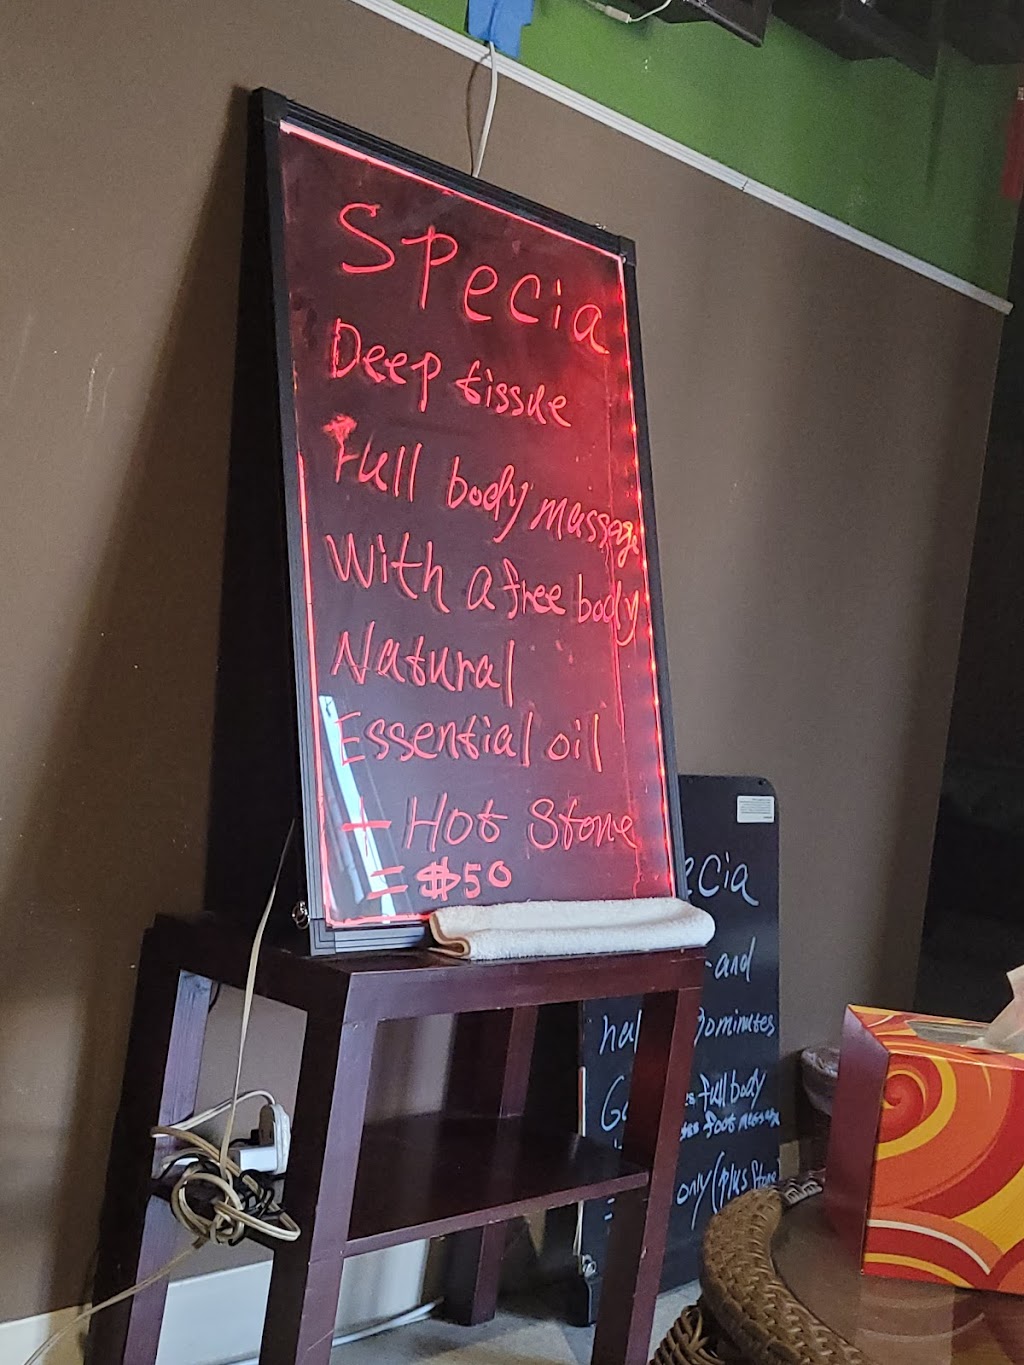 Specia
Deep tissue
Full body massage
With a free body
Natural
Essential oil
+ Hot Stone
= $50
ecia
and
minutes
full body
foot massage
only (plus Stone